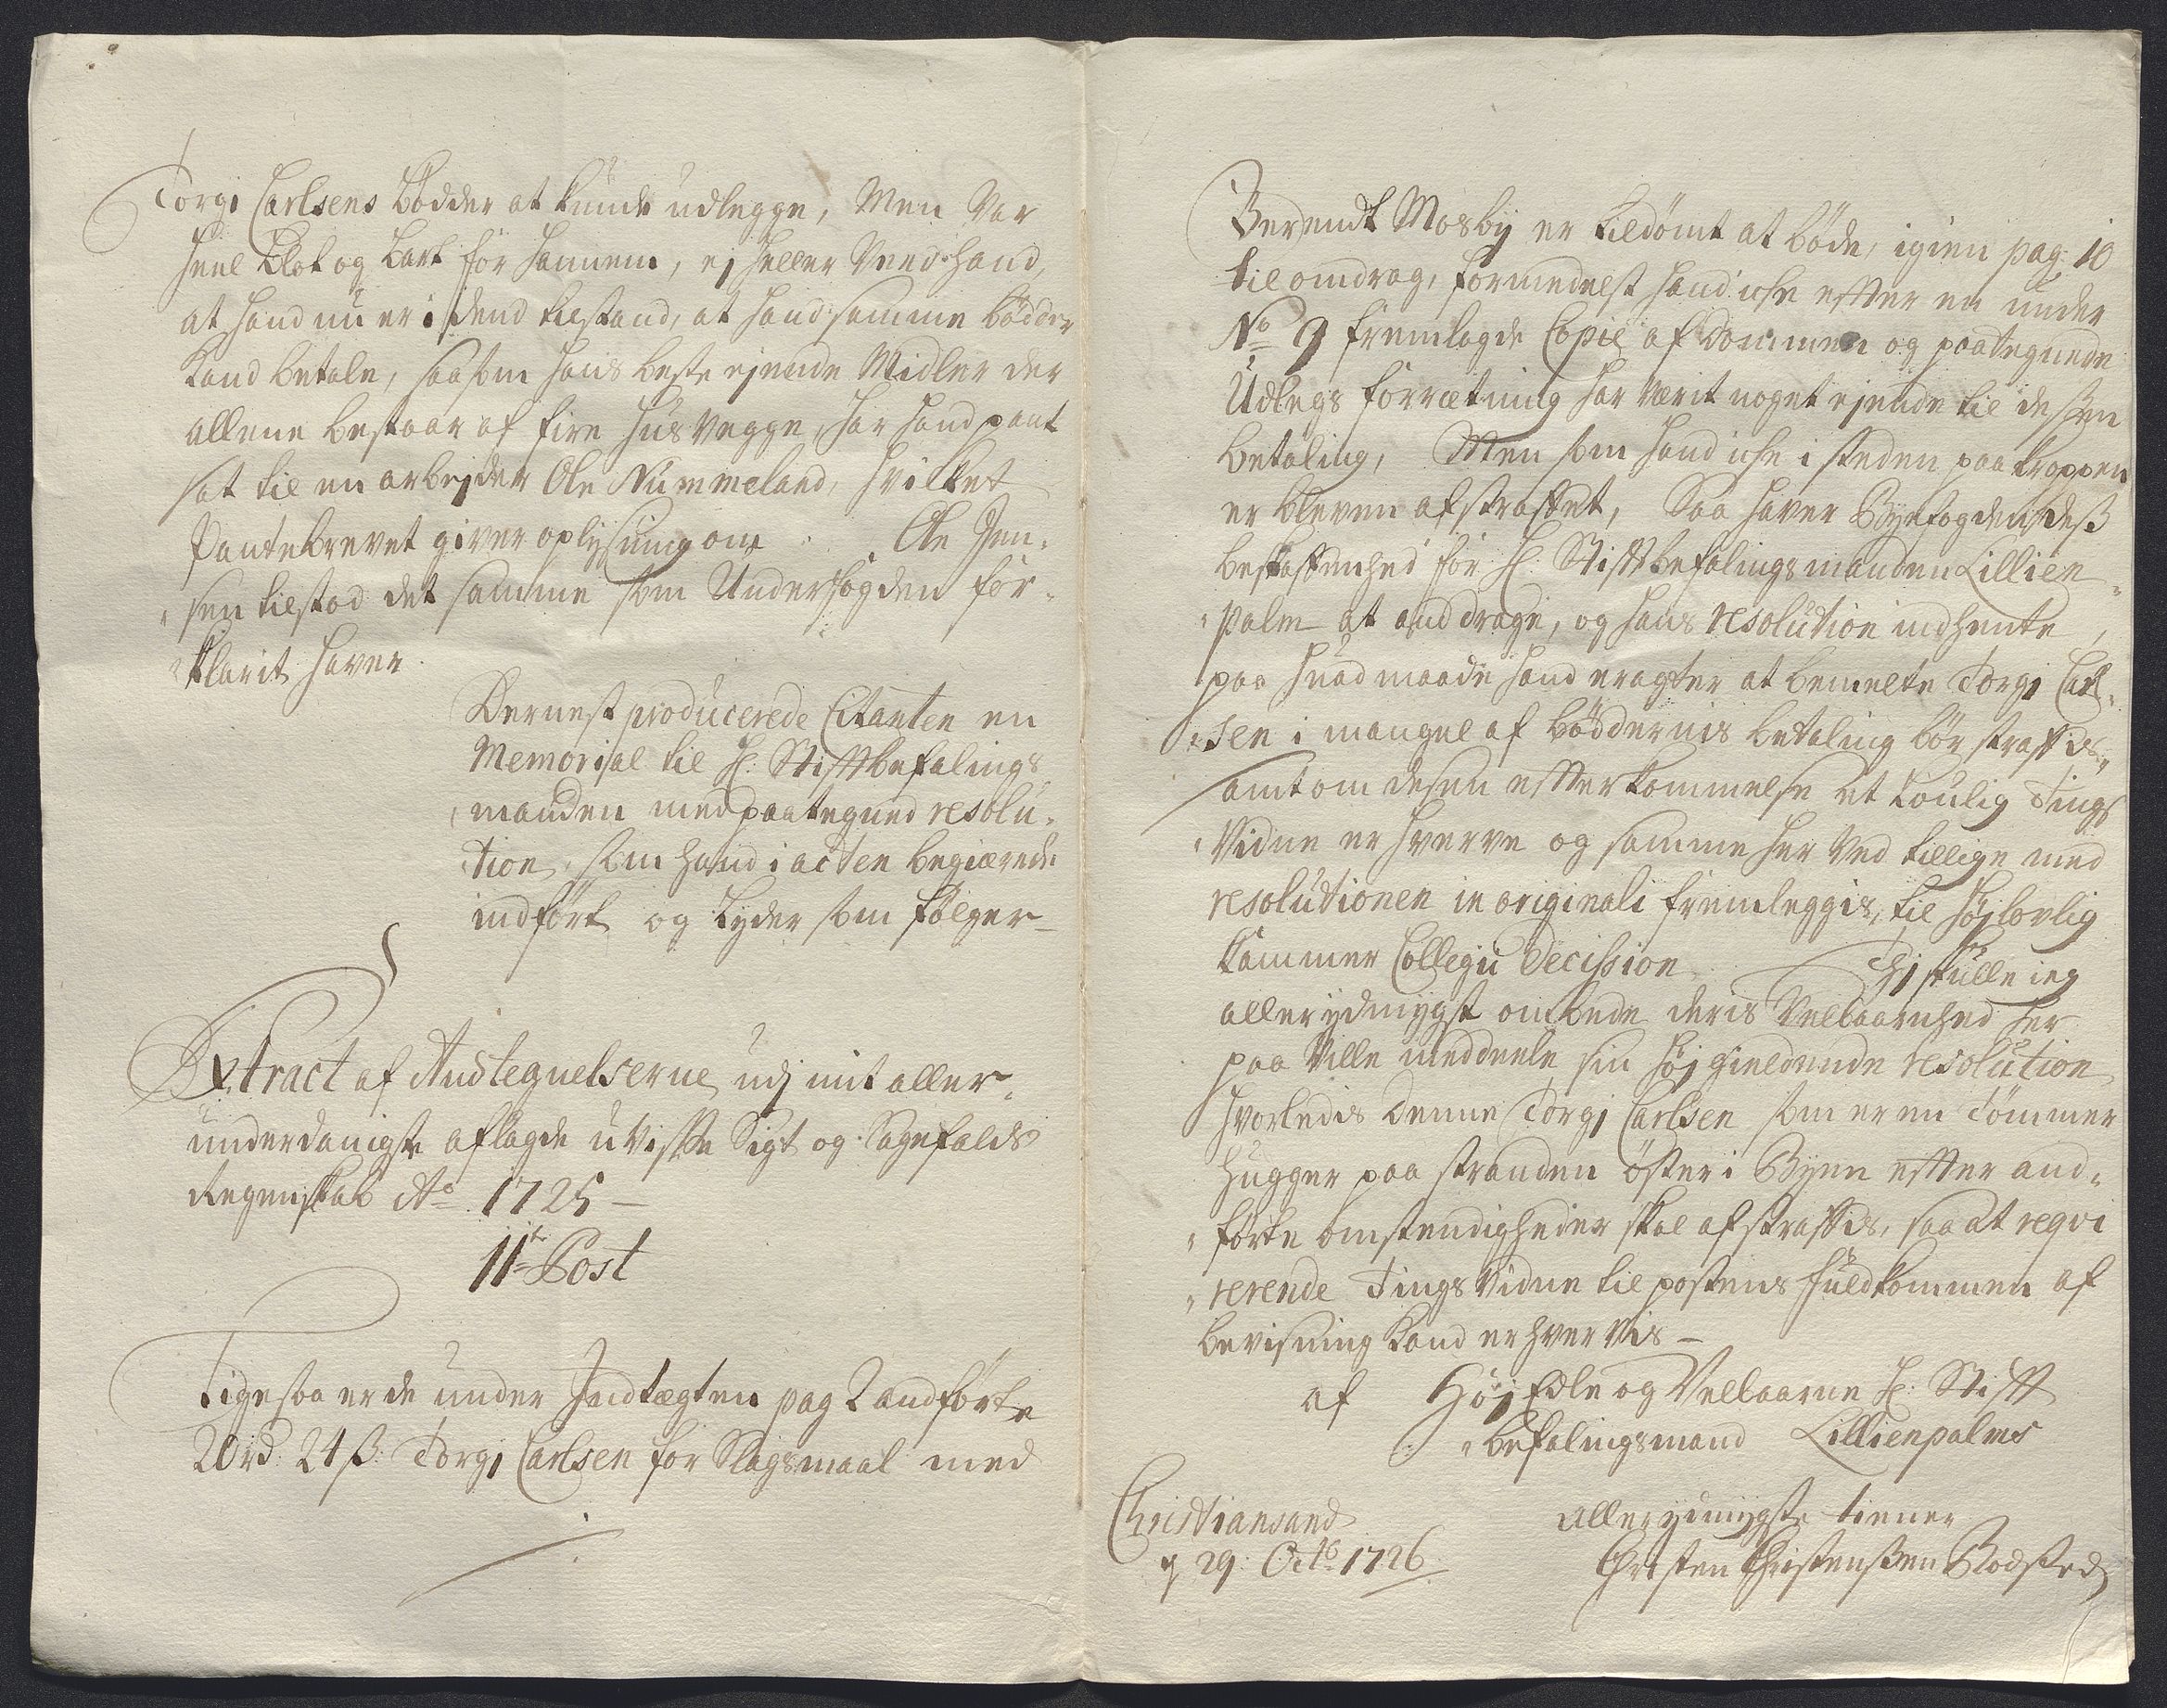 Torgi Carlsens bödder at kunde udlegge, Men Var
heel blot og bart for hannem, ej heller Veed hand,
at hand nu er i dend tilstand, at hand samme bödder
kand betale, saasom hans beste ejende Midler der
allene bestaar af fire huus Vegge, har hand pant
sat til en arbejder Ole Nummeland, hvilket
Pantebrevet giver oplysning om Ole Jen-
sen tilstod det samme som Underfogden for-
klarit haver.
Dernest producerede Citanten en
Memorial til H: Stiftbefalings
manden med paategned resolu-
tion, som hand i acten begierede
indfört og lyder som fölger
Extract af Andtegnelserne udj mit aller-
underdanigste aflagde uVisse Sigt og Sagefalds
Regenskab Ao. 1725
11te Post
Ligesaa er de under Indtægten pag 2 andförte
20 rd: 24 s: Torgi Carlsen for Slagsmaal med
Berendt Mosby er tildömt at böde, igien pag: 10
til omdrag, formedelst hand iche efter en under
No 9 fremlagde Copie af dommen og paategnede
Udlegs forrætning har værit noget ejende til dessen
betaling, Men som hand iche i steden paa kroppen
er bleven afstraffet, Saa haver Byefogden dess
beskaffenhed for H: Stiftbefalingsmanden Lillien-
palm at anddrage, og hans resolution indhente,
paa hvad maade hand eragter at bemelte Torgi Carl-
sen i mangel af böddernis betaling bör straffis,
samt om desen efterkommelse et loulig Tings
Vidne erhverve og samme her Ved tillige med
resolutionen in originali fremleggis, til höjlovlig
Kammer Collegii Decission Thj skulle ieg
allerydmygst ombede deris Velbaarnhed her
paa Ville meddeele sin höjgieldende resolution,
hvorledis denne Torgi Carlsen som er en Tömmer
hugger paa stranden öster i Byen efter and-
förte omstendigheder skal afstraffis, saa at reqvi
rerende Tings Vidne til postens fuldkommen af
bevisning kand erhvervis
af Höj Edle og Velbaarne H: Stift
befalingsmand Lillienpalms
Christiansand allerydmygste tiener
d 29: Octb 1726 Christen Christenssen Rodsted